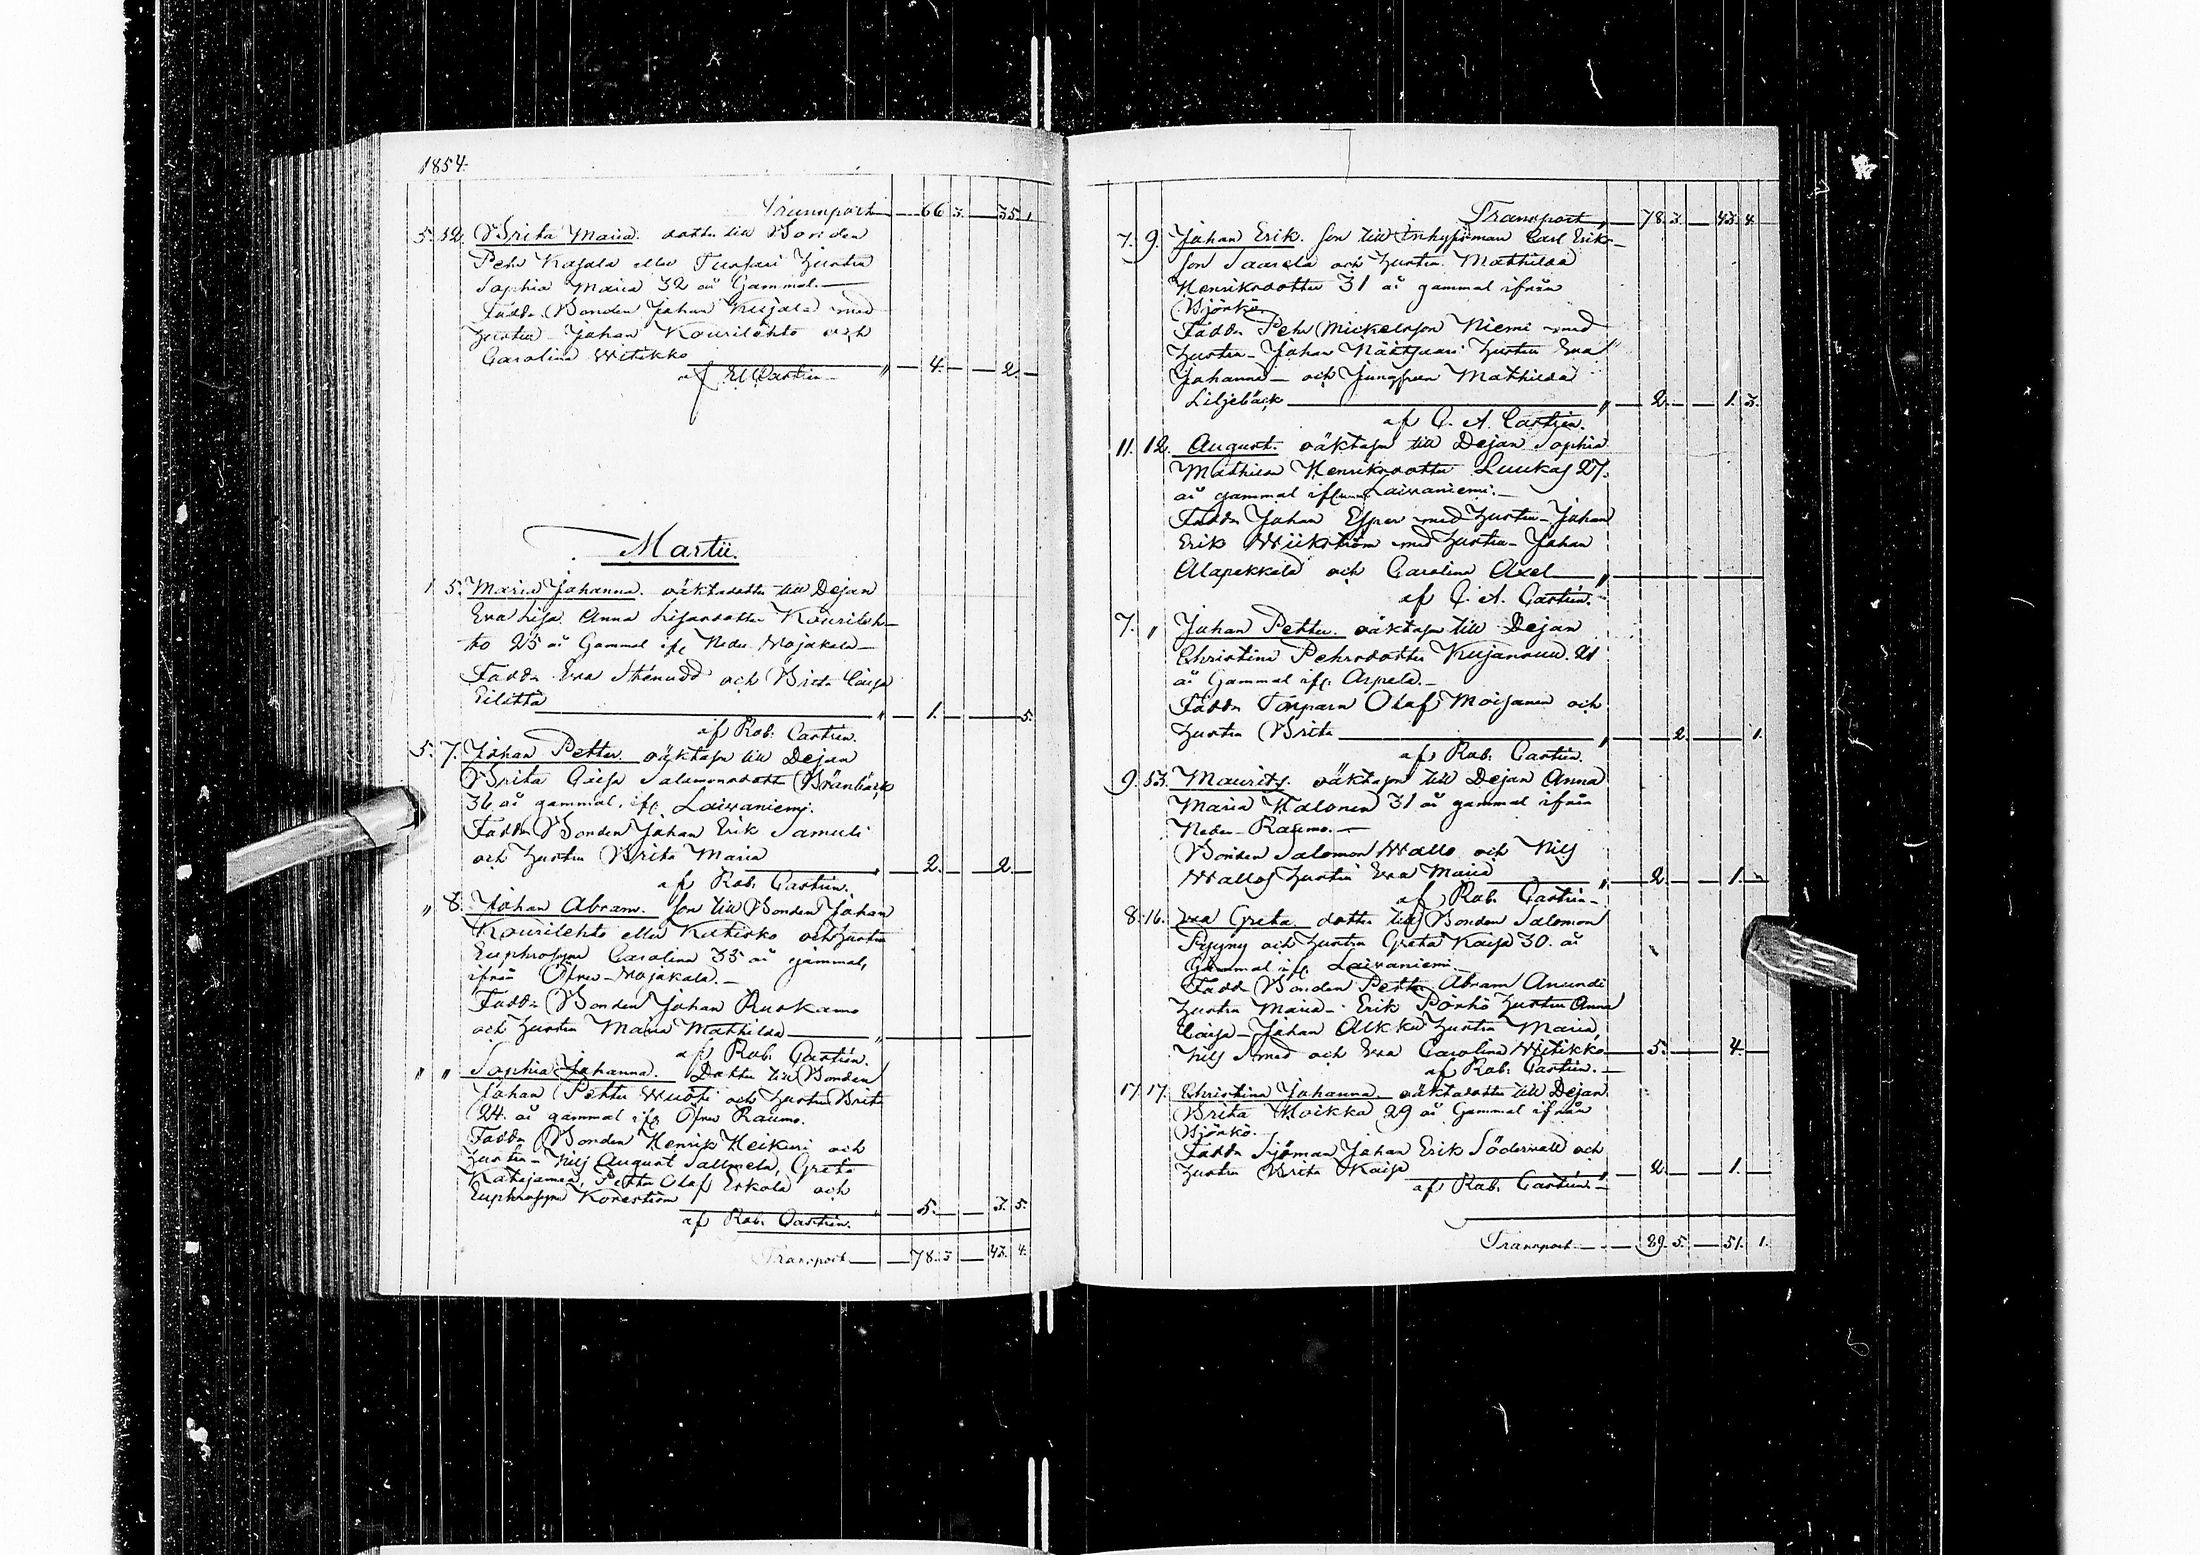 1854.
Transport 66 3. 35. 1
5. 12. Brita Maria. dotter till Bonden
Pehr Kajala eller Hustru
Sophia Maria 32 år Gammal.
Fadd. Bonden Johan Kujala med
hustru - Johan Kourilehto och
Carolina Witikko " 4. 2.
af Castrén
Martii.
1. 5. Maria Johanna. oäktadotter till Dejan
Eva Lisa Anna Lisasdotter Kourileh-
to 25 år Gammal ifr. Neder Wojakala
Fadd. Eva Stenudd och Brita Caisa
" 1. 5.
af Rob. Castrén.
5. 7. Johan Petter. oäktason till Dejan
Brita Caisa Salomonsdotter Bränbäck
36 år gammal, ifr. Laivaniemi.
Fadd. Bonden Johan Erik Samuli
och hustru Brita Maria " 2. 2.
af Rob. Castrén.
" 8. Johan Abram. son till Bonden Johan
Kourilehto eller och hustru
Euphrosyne Carolina 35 år gammal,
ifrån Öfver-Wojakala.
Fadd. Bonden Johan Ruokamo
och hustru Maria Mathilda "
af Rob. Castrén.
" " Sophia Johanna. Dotter till Bonden
Johan Petter och hustru Brita
24. år gammal ifr. Öfver Raumo.
Fadd. Bonden Henrik Heikuri och
hustru - Nils August Sallmela, Greta
Katajamaa, Petter Olaf Erkola och
Euphrosyne " 5. 3. 5.
af Rob. Castrén.
Transport 78. 3 43. 4.
Transport " 78. 3. 43. 4.
7. 9. Johan Erik. son till Inhysisman Carl Eriks-
son Saarela och hustru Mathilda
Henriksdotter 31 år gammal ifrån
Björkö.
Fadd. Pehr Mickelsson Niemi med
hustru - Johan hustru Eva
Johanna - och Jungfrun Mathilda
Liljebäck " 2. 1. 3.
af C. A. Castrén.
11. 12. August. oäktason till Dejan Sophia
Mathilda Henriksdotter Luukas 27.
år gammal ifrån Laivaniemi.
Fadd. Johan Esper med hustru - Johan
Erik Wiikström med hustru - Johan
Alapekkala och Carolina Axel "
af C. A. Castrén.
7. " Johan Petter. oäktason till Dejan
Christina Pehrsdotter Kujansuu. 21
år Gammal ifr. Arpela.
Fadd. Torparn Olaf Moijanen och
hustru Brita " 2. 1.
af Rob. Castrén.
9. 13. Maurits. oäktason till Dejan Anna
Maria Halonen 31 år gammal ifrån
Neder-Raumo.
Bonden Salomon Wallo och Nils
Wallos hustru Eva Maria " 2. 1.
af Rob. Castrén
8. 16. Eva Greta dotter till Bonden Salomon
Pyyny och hustru Greta Kaisa 30. år
Gammal ifr. Laivaniemi.
Fadd. Bonden Petter Abram Anundi
hustru Maria - Erik Pörhö hustru Anna
Caisa - Johan Alkku hustru Maria
Nils Smed och Eva Carolina Witikko 5. 4.
af Rob. Castrén.
17. 17. Christina Johanna. oäktadotter till Dejan
Brita Hoikka 29 år Gammal ifrån
Björkö.
Fadd. Sjöman Johan Erik Södervall och
hustru Brita Kaisa " 2. 1.
af Rob. Castrén.
Transport 89. 5. 51. 1.